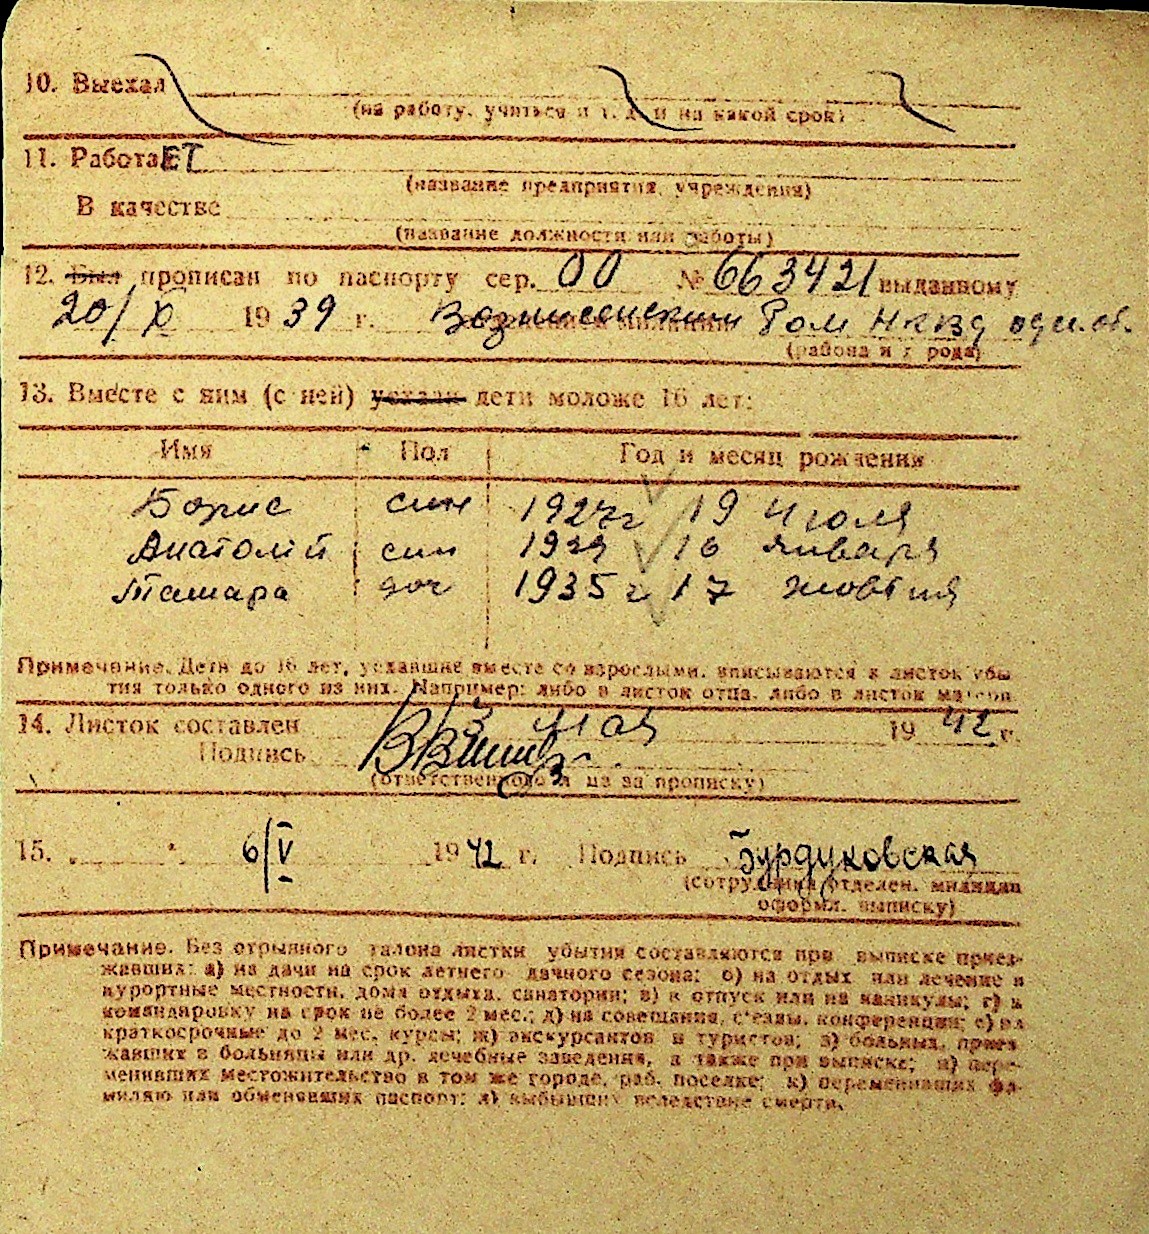 10. Выехал
(на работу, учиться и т. д. и на какой срок)
11. РаботаЕТ
(название предприятия, учреждения)
В качестве
(название должности или работы)
12. Был прописан по паспорту сер. 00 № 663421 выданному
20/X 1939 г. Вознисенским Ром НКВД
(района и города)
13. Вместе с ним (с ней) уехали дети моложе 16 лет:
Имя Пол Год и месяц рождения
Борис син 1927 г 19 июля
Анатолій син 1929 16 января
Тамара доч 1935 г 17 жовтня
Примечание. Дети до 16 лет, уехавшие вместе со взрослыми, вписываются в листок убы-
тия только одного из них. Например: либо в листок отца, либо в листок матери
14. Листок составлен 3 мая 1942 г.
Подпись
(ответственного лица за прописку)
15. 6/V 1942 г. Подпись Бурдуковская
(сотрудника отделен. милиции
оформл. выписку)
Примечание. Без отрывного талона листки убытия составляются при выписке приез-
жавших: а) на дачи на срок летнего дачного сезона; б) на отдых или лечение в
курортные местности, дома отдыха, санатории; в) в отпуск или на каникулы; г) в
командировку на срок не более 2 мес.; д) на совещания, с'езды, конференции; е) на
краткосрочные до 2 мес. курсы; ж) экскурсантов и туристов; з) больных, приез-
жавших в больницы или др. лечебные заведения, а также при выписке; и) пере-
менивших местожительство в том же городе, раб. поселке; к) переменивших фа-
милию или обменявших паспорт; л) выбывших вследствие смерти.